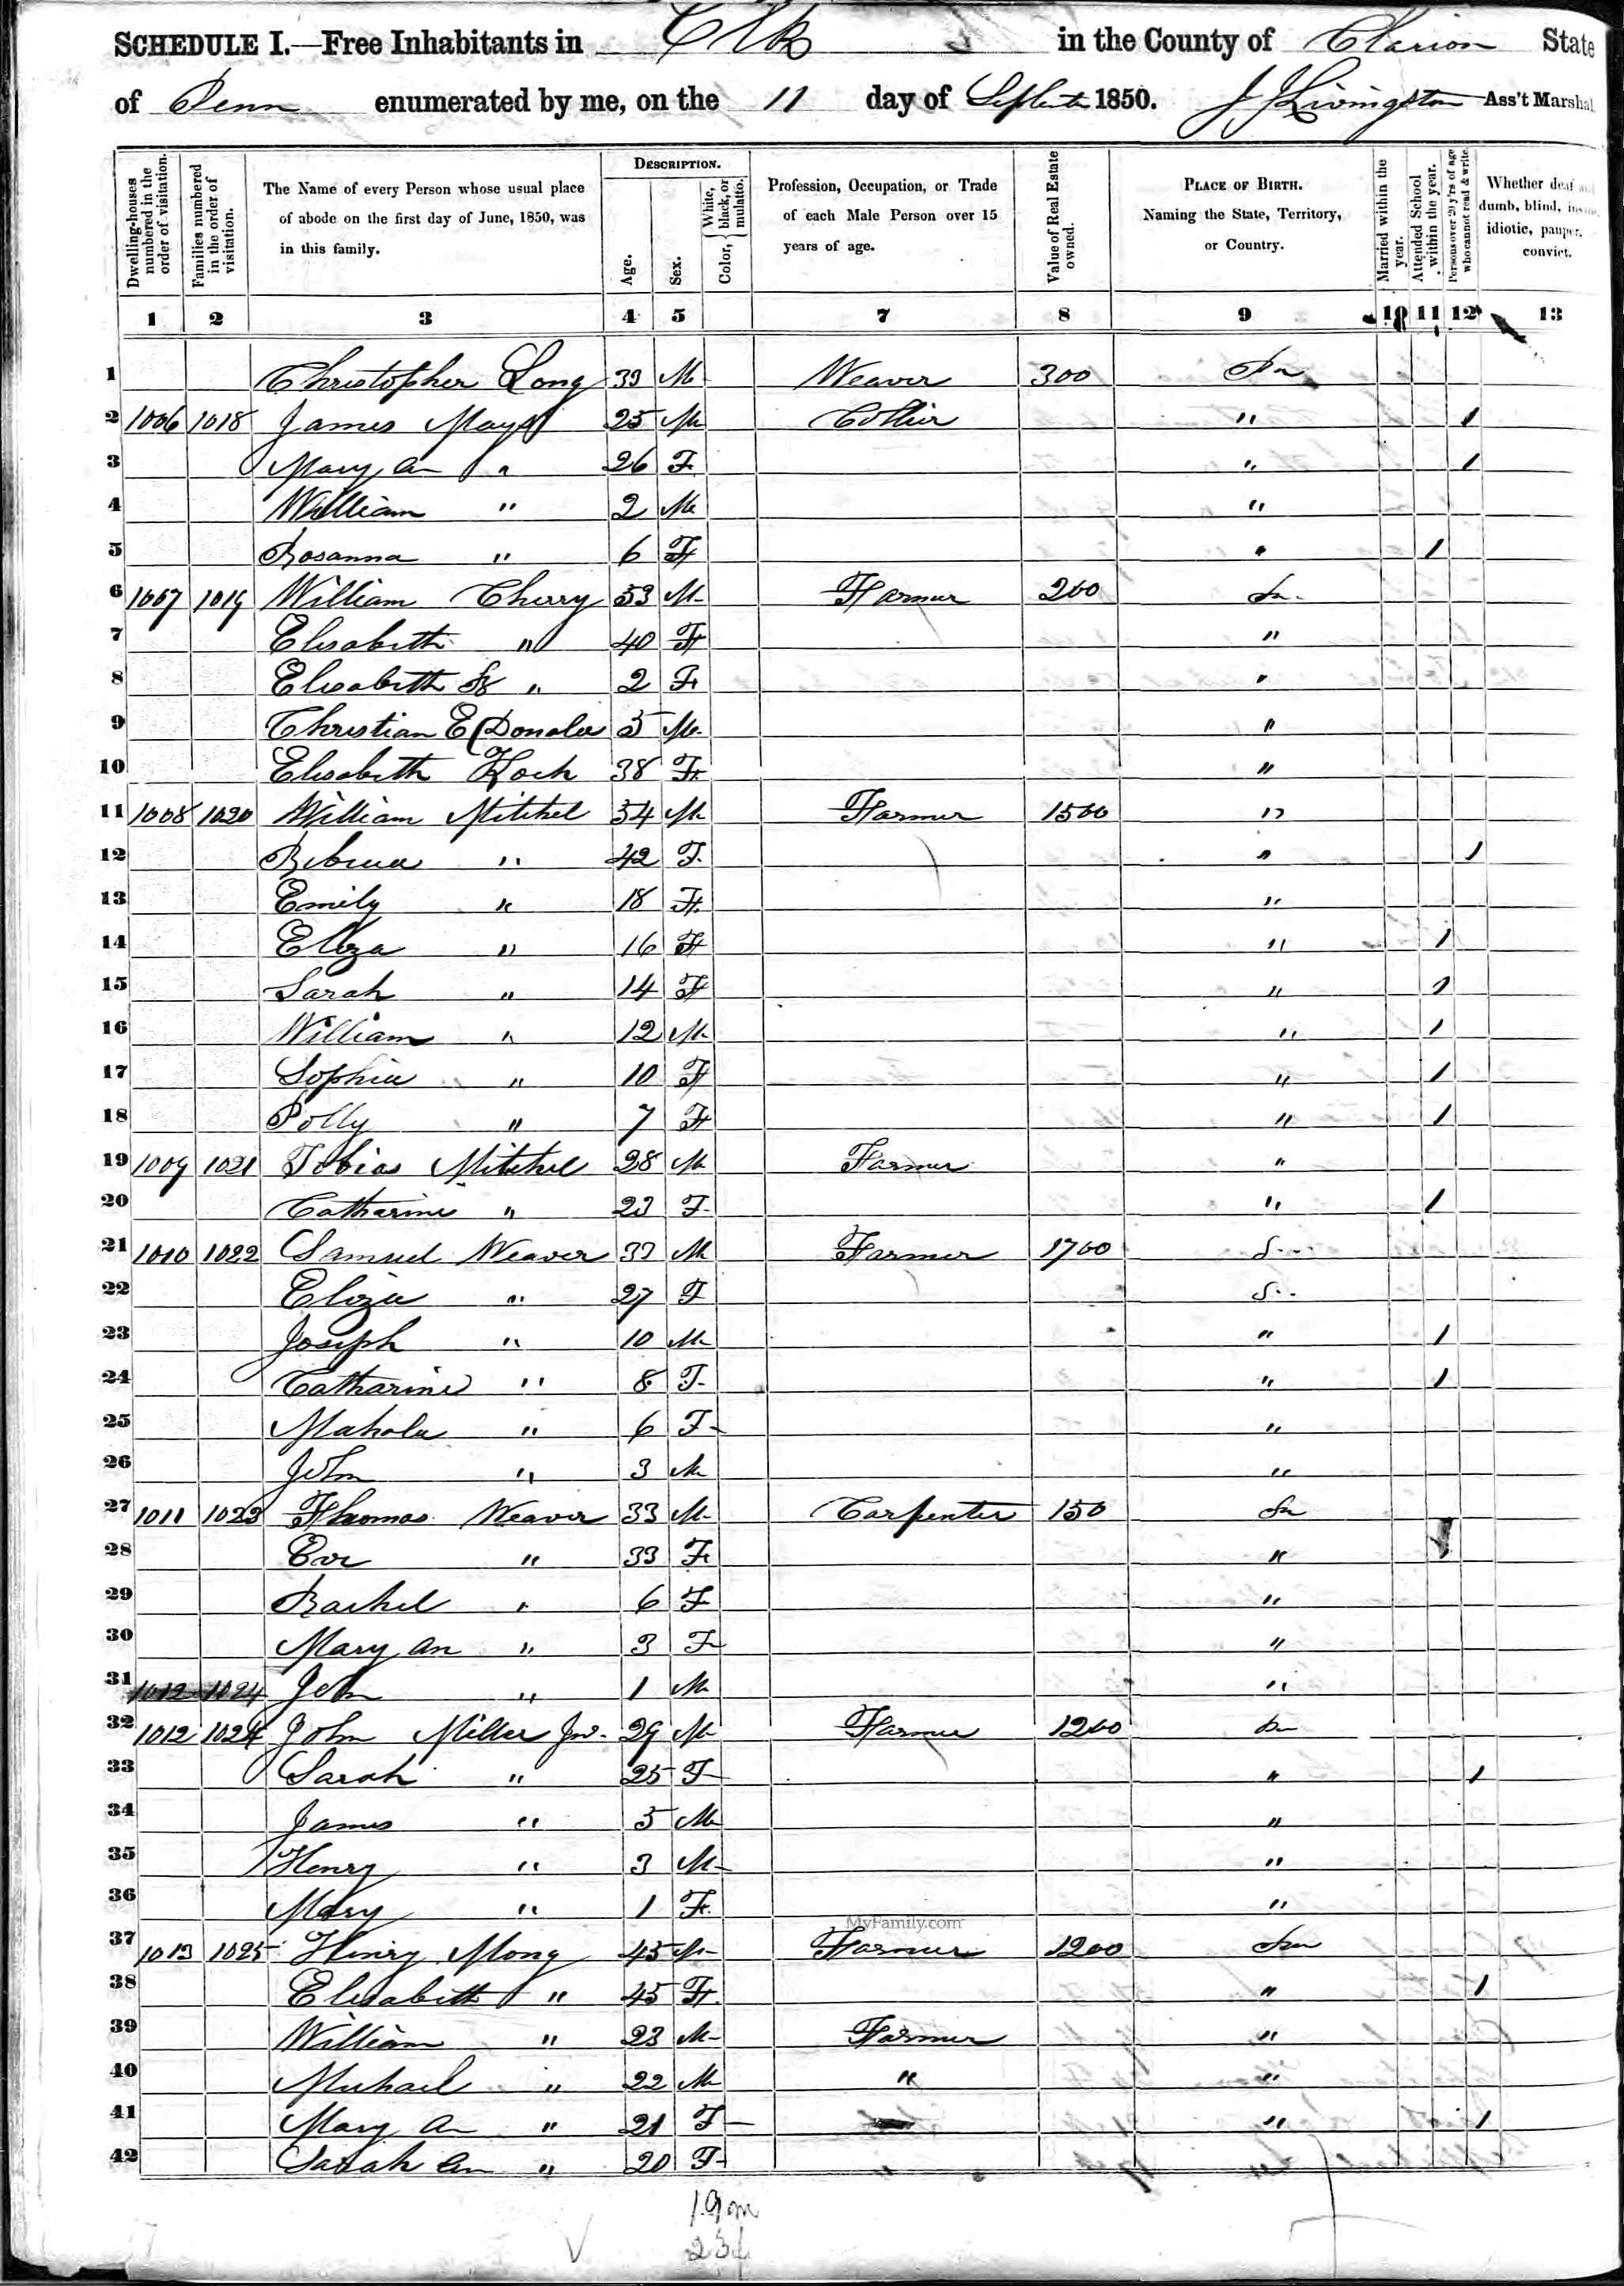 SCHEDULE I.—Free Inhabitants in Elk in the County of Clarion State
of Penn enumerated by me, on the 11 day of September 1850. J J Livingston Ass't Marshal
Dwelling-houses numbered in the order of visitation.
Families numbered in the order of visitation.
The Name of every Person whose usual place of abode on the first day of June, 1850, was in this family.
DESCRIPTION.
Age.
Sex.
Color, White, black, or mulatto.
Profession, Occupation, or Trade of each Male Person over 15 years of age.
Value of Real Estate owned.
PLACE OF BIRTH. Naming the State, Territory, or Country.
Married within the year.
Attended School within the year.
Persons over 20 y'rs of age who cannot read & write.
Whether deaf and dumb, blind, insane, idiotic, pauper, convict.
1 2 3 4 5 7 8 9 10 11 12 13
1 Christopher Long 33 M Weaver 300
2 1006 1018 James Mays 25 M Collier " 1
3 Mary An " 26 F " 1
4 William " 2 M "
5 Rosanna " 6 F " 1
6 1007 1019 William Cherry 53 M Farmer 200
7 Elisabeth " 40 F "
8 Elisabeth " 2 F "
9 Christian E 5 M "
10 Elisabeth 38 F "
11 1008 1020 William Mitchel 54 M Farmer 1500 "
12 " 42 F " 1
13 Emily " 18 F "
14 Eliza " 16 F " 1
15 Sarah " 14 F " 1
16 William " 12 M " 1
17 Sophia " 10 F " 1
18 Polly " 7 F " 1
19 1009 1021 Tobias Mitchel 28 M Farmer "
20 Catharine " 23 F " 1
21 1010 1022 Samuel Weaver 33 M Farmer 1700
22 Eliza " 27 F
23 Joseph " 10 M " 1
24 Catharine " 8 F " 1
25 Mahala " 6 F "
26 John " 3 M "
27 1011 1023 Thomas Weaver 33 M Carpenter 150
28 Eve " 33 F "
29 Rachel " 6 F "
30 Mary An " 3 F "
31 1012 1024 John " 1 M "
32 1012 1024 John Miller Jnr 29 M Farmer 1200
33 Sarah " 25 F " 1
34 James " 5 M "
35 Henry " 3 M "
36 Mary " 1 F "
MyFamily.com
37 1013 1025 Henry Mong 45 M Farmer 1200
38 Elisabeth " 45 F " 1
39 William " 23 M Farmer "
40 Michael " 22 M " "
41 Mary An " 21 F " 1
42 Sarah An " 20 F
19m
23f